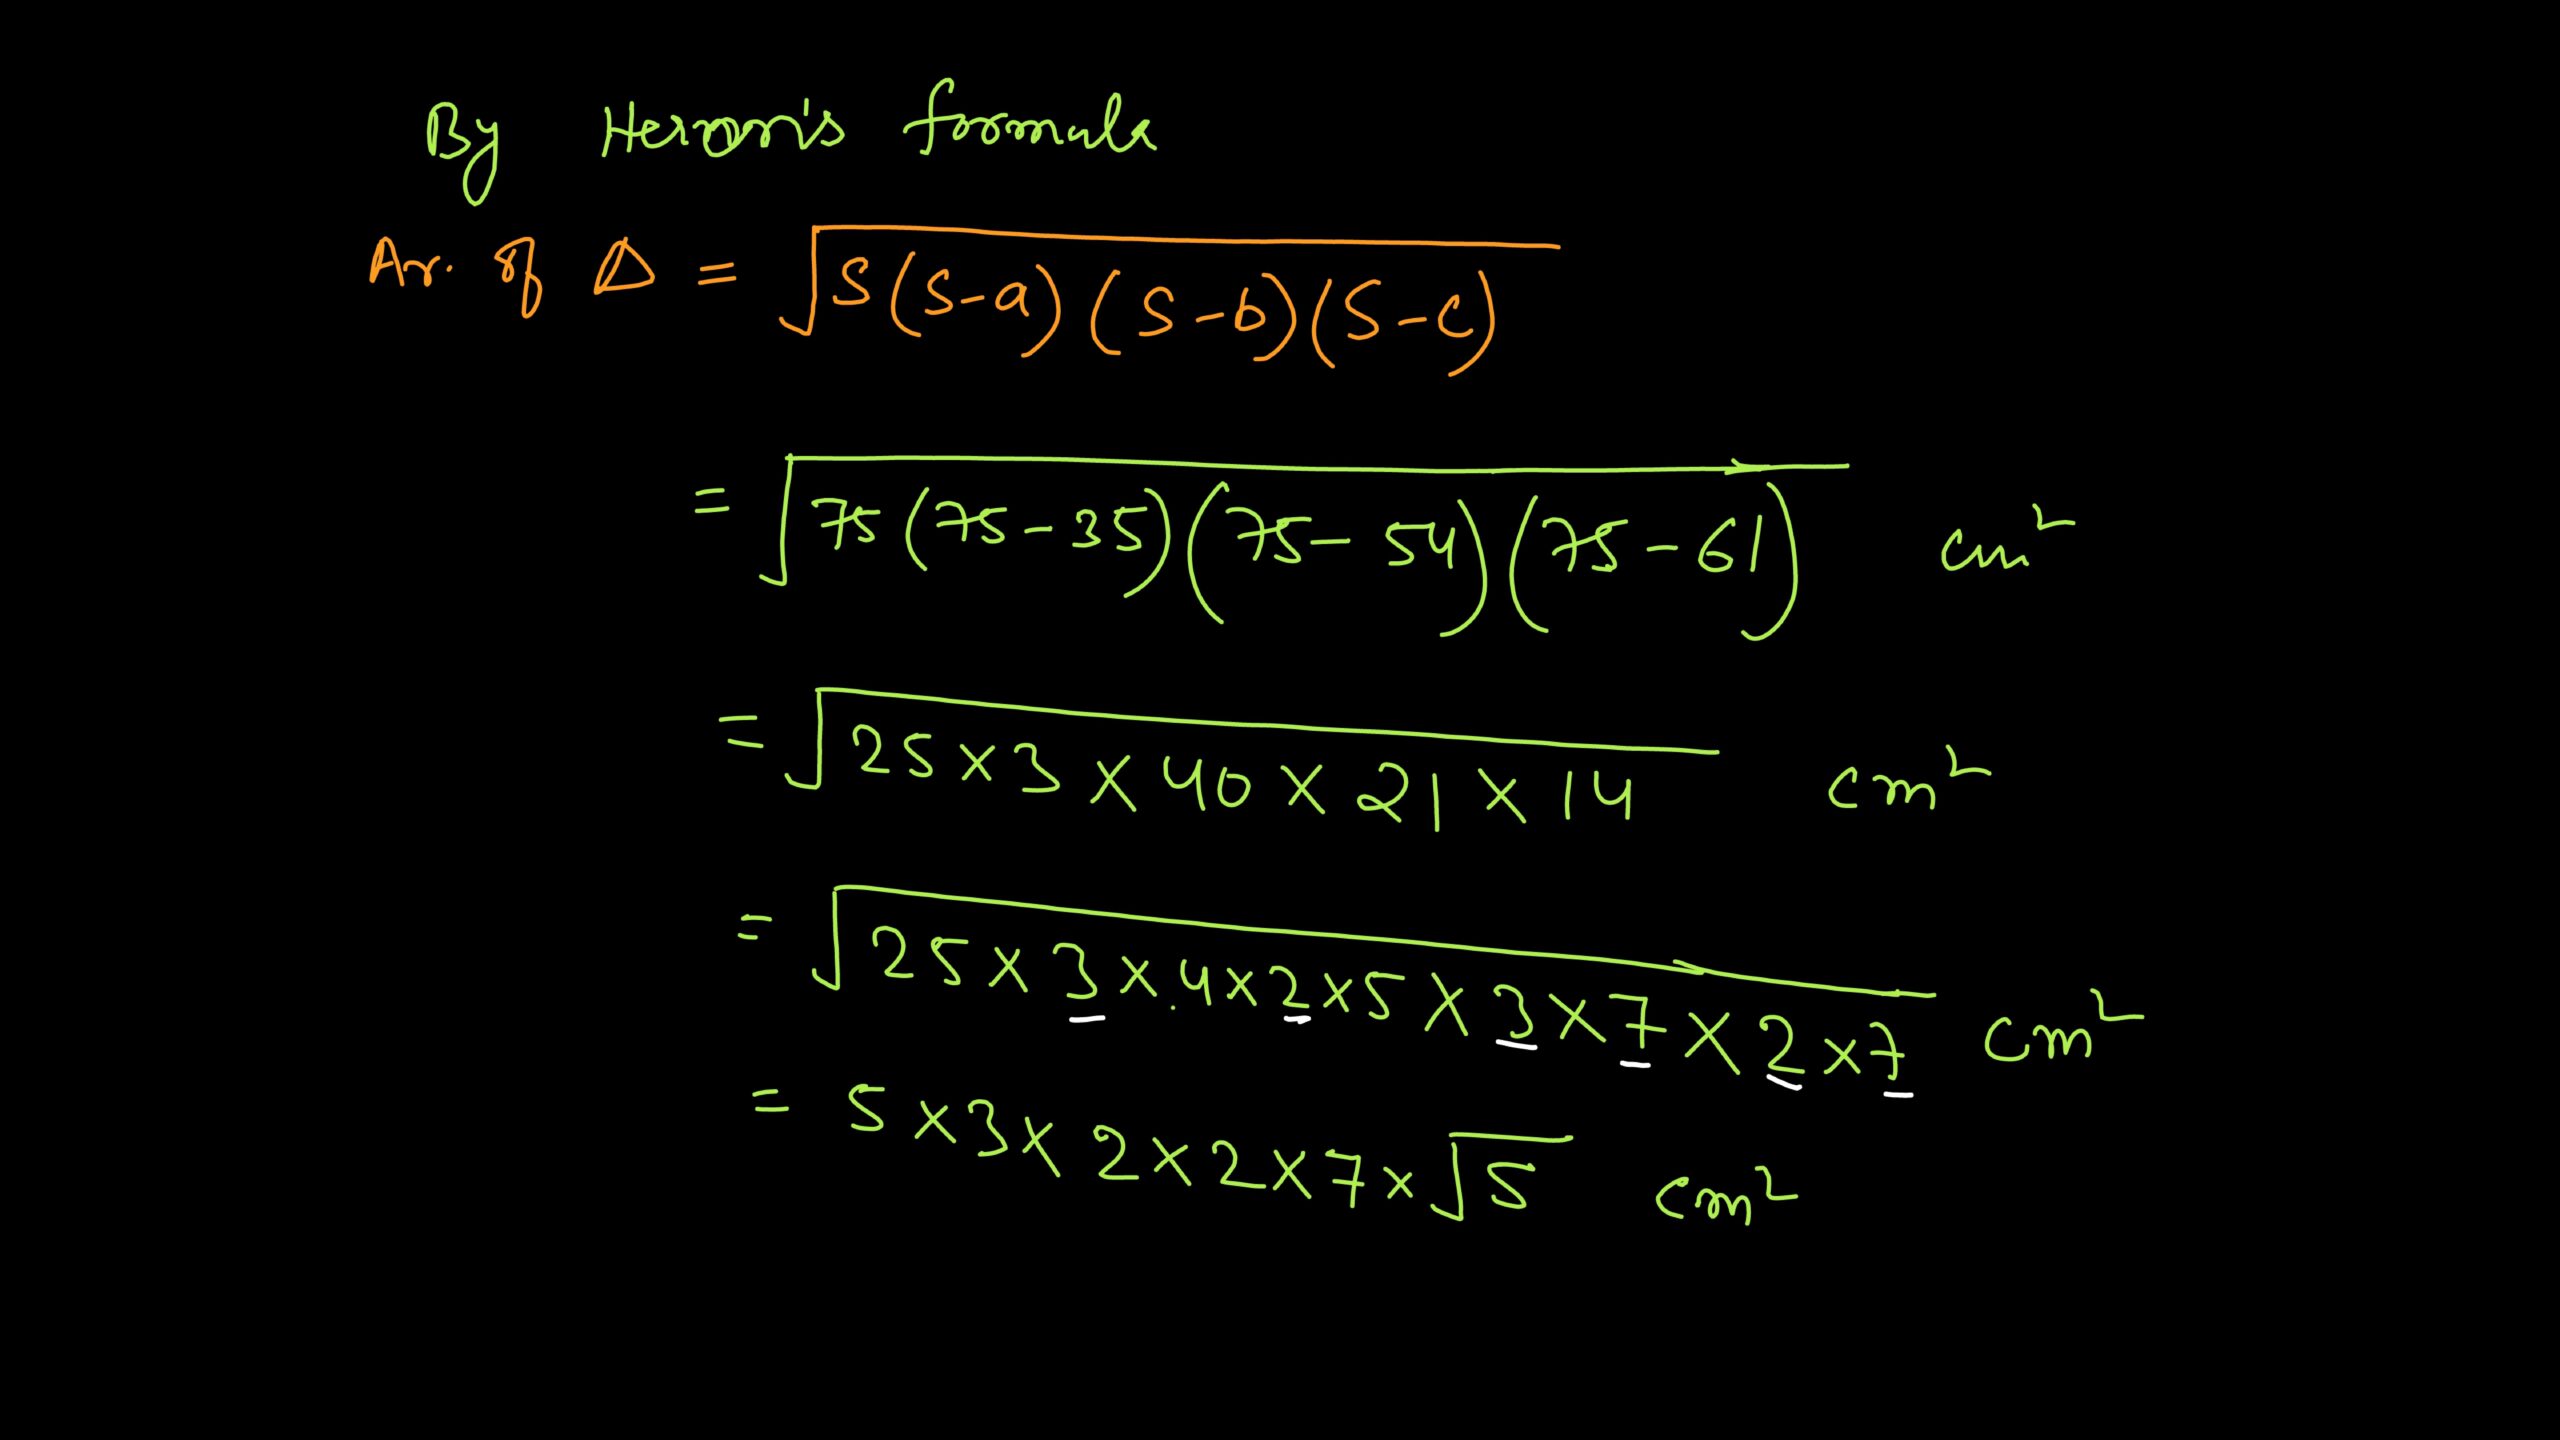 By Heron's formula
Ar. of Δ = √S(S-a)(S-b)(S-c)
= √75(75-35)(75-54)(75-61) cm²
= √25×3×40×21×14 cm²
= √25×3×4×2×5×3×7×2×7 cm²
= 5×3×2×2×7×√5 cm²